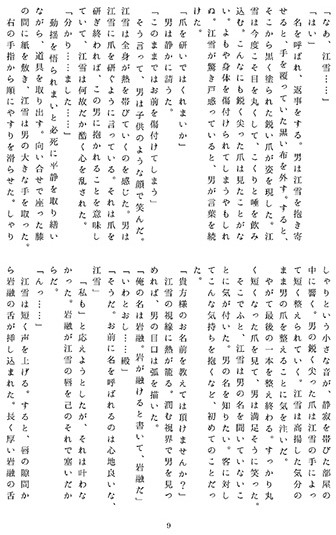 「なあ、江雪……」
「はい」
　名を呼ばれ、返事をする。男は江雪を抱き寄
せると、手を覆っていた黒い布を外す。すると、
そこから黒く塗られた鋭い爪が姿を現した。江
雪は今度こそ目を丸くして、こくりと唾を飲み
込む。こんなにも鋭く尖った爪は見たことがな
い。よもや身体を傷付けられてしまうやもしれ
ぬ。江雪が驚き戸惑っていると、男が言葉を続
けた。
「爪を研いではくれまいか」
　男は静かに請うた。
「このままではお前を傷付けてしまう」
　そう言って、男は子供のような顔で笑んだ。
　江雪は全身が熱を帯びていくのを感じた。男は
江雪に爪を研ぐように言っている。それは爪を
研ぎ終われば、この男に抱かれることを意味し
ていて、江雪は何故だか酷く心を乱された。
「分かり……ました……」
　動揺を悟られまいと必死に平静を取り繕い
ながら、道具を取り出す。向い合せで座った膝
の間に紙を敷き、江雪は男の大きな手を取った。
右の手指から順にやすりを滑らせた。しゃり
しゃりという小さな音が、静寂を帯びた部屋の
中に響く。男の鋭く尖った爪は江雪の手によっ
て短く整えられていく。江雪は高揚した気分の
まま男の爪を整えることに気を注いだ。
　やがて最後の一本を整え終わる。すっかり丸
く短くなった爪を見て、男は満足そうに笑った。
　そこでふと、江雪は男の名を聞いていないこ
とに気が付いた。男の名を知りたい。客に対し
てこんな気持ちを抱くなど、初めてのことだっ
た。
「貴方様のお名前を教えては頂けませんか？」
　江雪の視線に熱が籠る。潤む視界で男を見つ
めれば、男の目口は弧を描いた。
「俺の名は岩融。岩が融けると書いて、岩融だ」
「いわとおし……殿」
「そうだ。お前に名を呼ばれるのは心地良いな、
江雪」
「私も」と応えようとしたが、それは叶わな
かった。岩融が江雪の唇をそれで塞いだか
らだ。
「っ……」
　江雪は短く声を上げる。すると、唇の隙間か
ら岩融の舌が挿し込まれた。長く厚い岩融の舌
9